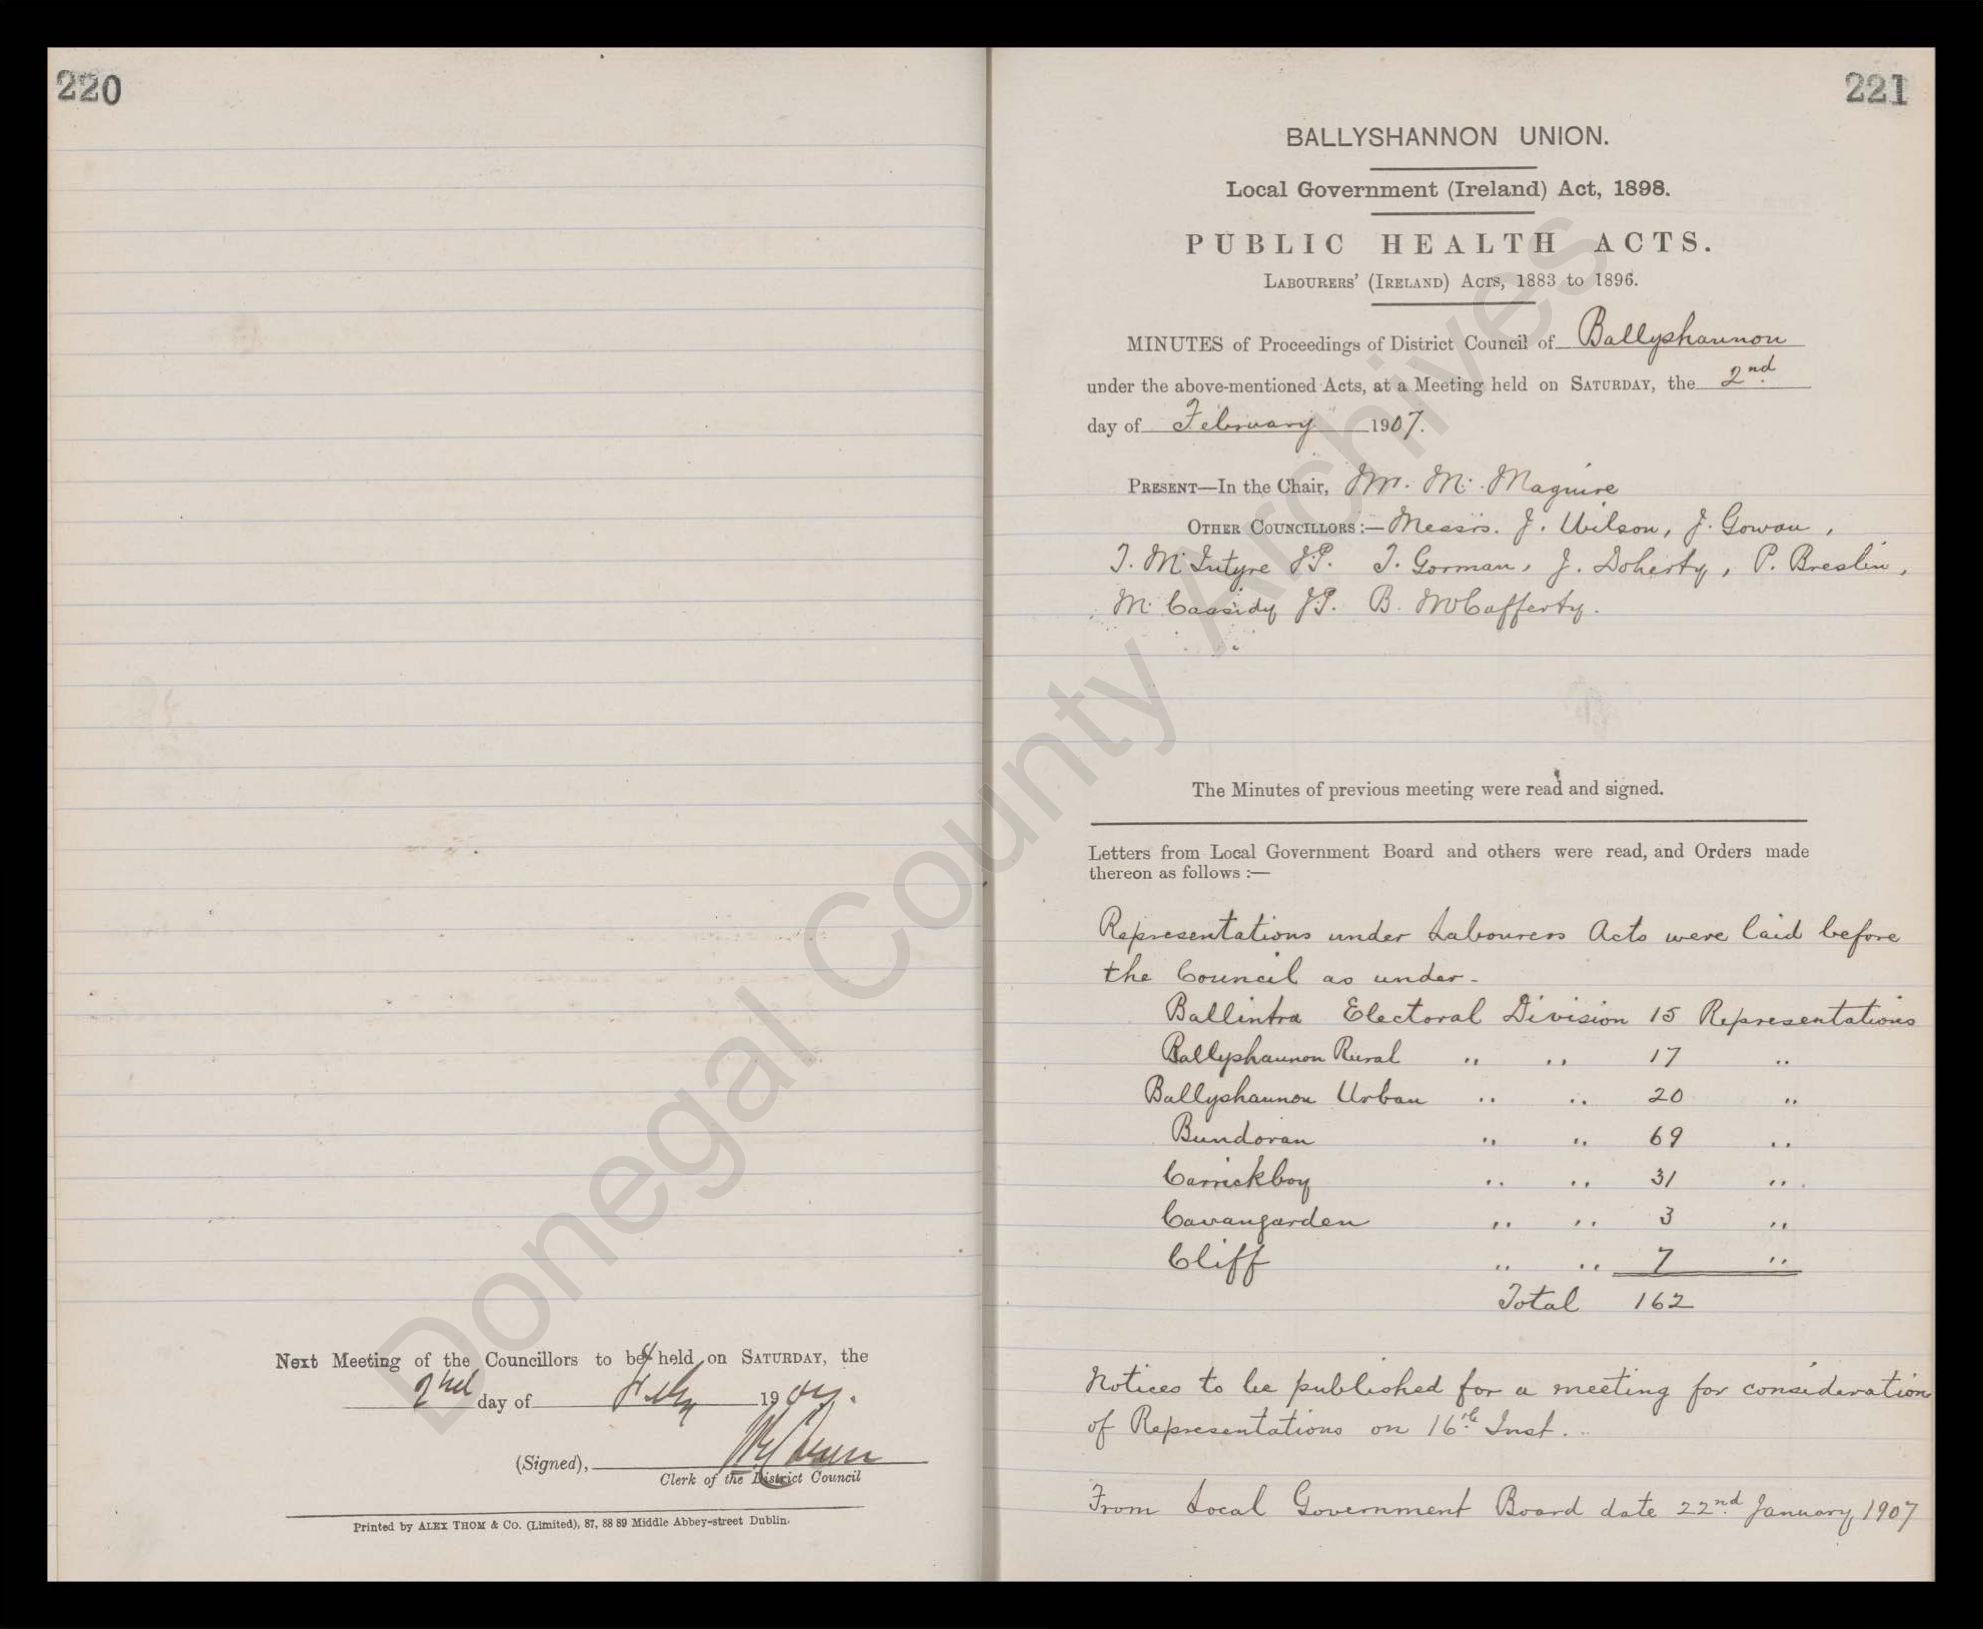 220
Next Meeting of the Councillors to be held on SATURDAY, the
2nd day of Feby 1907.
(Signed),
Clerk of the District Council
Printed by ALEX THOM & Co. (Limited), 87, 88 89 Middle Abbey-street Dublin.
221
BALLYSHANNON UNION.
Local Government (Ireland) Act, 1898.
PUBLIC HEALTH ACTS.
LABOURERS' (IRELAND) ACTS, 1883 to 1896.
MINUTES of Proceedings of District Council of Ballyshannon
under the above-mentioned Acts, at a Meeting held on SATURDAY, the 2nd
day of February 1907.
PRESENT—In the Chair, Mr. M. Maguire
OTHER COUNCILLORS:— Messrs. J. Wilson, J. Gowan,
T. McIntyre J.P. T. Gorman, J. Doherty, P. Breslin,
M. Cassidy J.P. B. McCafferty.
The Minutes of previous meeting were read and signed.
Letters from Local Government Board and others were read, and Orders made
thereon as follows :—
Representations under Labourers Acts were laid before
the Council as under-
Ballintra Electoral Division 15 Representations
Ballyshannon Rural " " 17 "
Ballyshannon Urban " " 20 "
Bundoran " " 69 "
Carrickboy " " 31 "
Cavangarden " " 3 "
Cliff " " 7 "
Total 162
Notices to be published for a meeting for consideration
of Representations on 16th Inst.
From Local Government Board date 22nd January 1907
Donegal County Archives